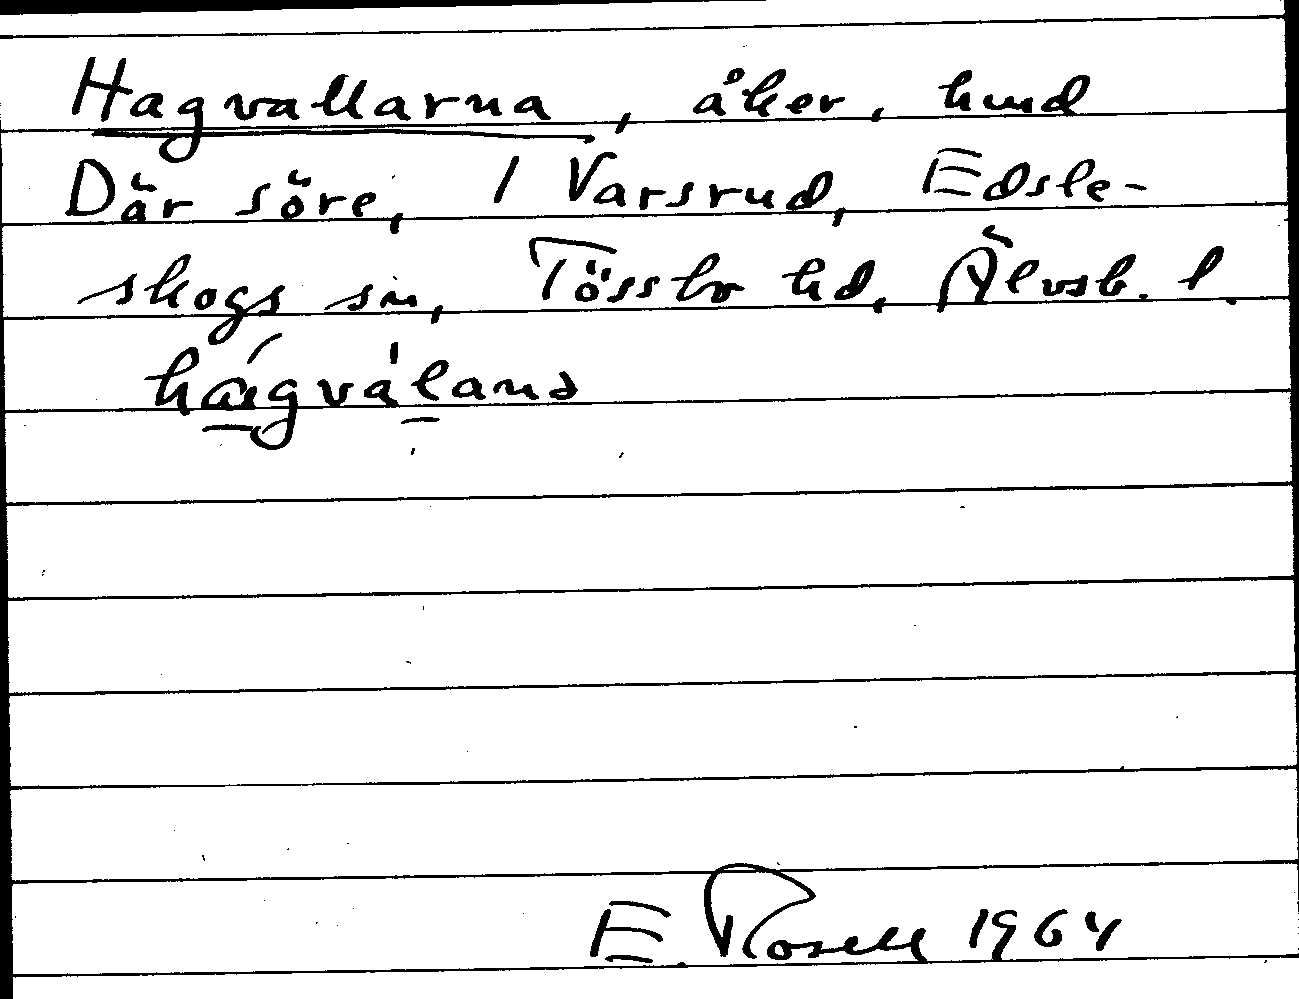 Hagvallarna, åker, hund
Där söre, 1 Varsrud, Edsle-
skogs sn, Tössbo hd, Älvsb. l.
E. Rosell 1964